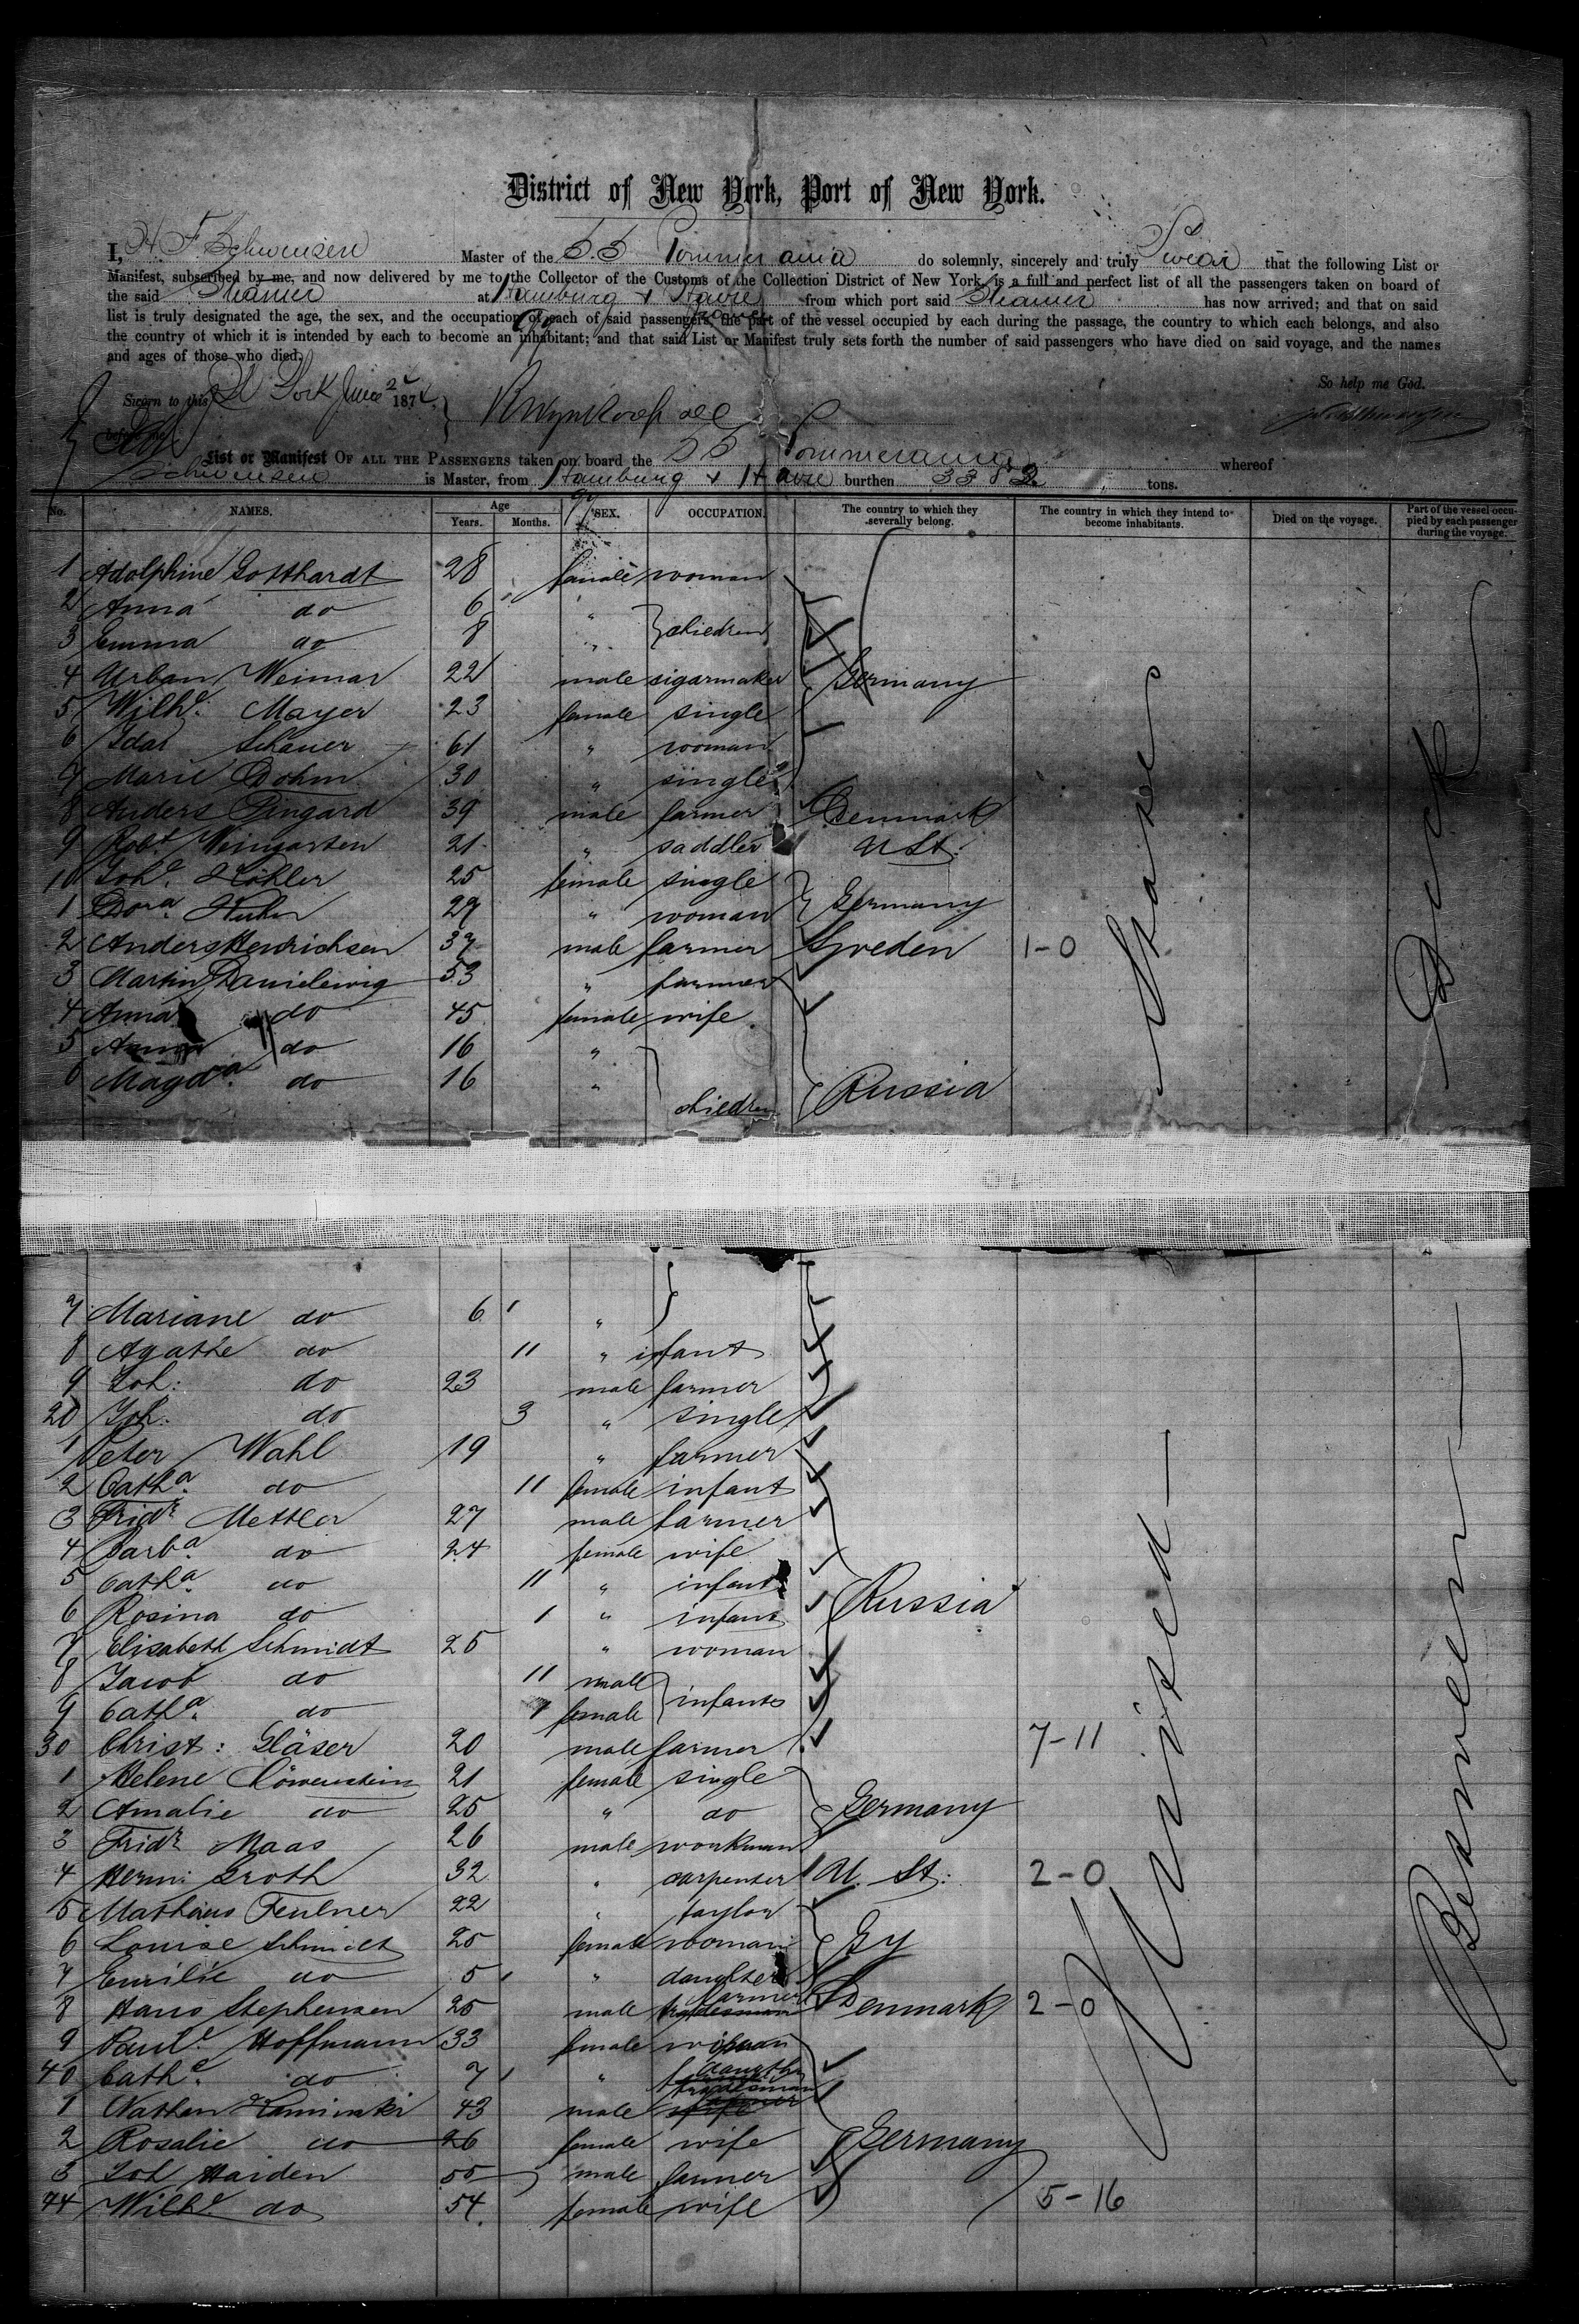 District of New York, Port of New York.
I, H. F. Schwensen Master of the S.S Pommerania do solemnly, sincerely and truly Swear that the following List or
Manifest, subscribed by me, and now delivered by me to the Collector of the Customs of the Collection District of New York, is a full and perfect list of all the passengers taken on board of
the said Steamer at Hamburg & Havre from which port said Steamer has now arrived; and that on said
list is truly designated the age, the sex, and the occupation of each of said passengers, the part of the vessel occupied by each during the passage, the country to which each belongs, and also
the country of which it is intended by each to become an inhabitant; and that said List or Manifest truly sets forth the number of said passengers who have died on said voyage, and the names
and ages of those who died.
So help me God.
Sworn to this N York June 187
before me
List or Manifest OF ALL THE PASSENGERS taken on board the SS Pommerania whereof
Schwensen is Master, from Hamburg & Havre burthen 3382 tons.
No. NAMES. Age Years. Months. SEX. OCCUPATION. The country to which they severally belong. The country in which they intend to become inhabitants. Died on the voyage. Part of the vessel occupied by each passenger during the voyage.
1 Adolphine Gotthardt 28 female woman
2 Anna do 6 "
3 Emma do 8 " children
4 Urban Weimar 22 male sigarmaker Germany
5 Wilhe. Mayer 23 female single
6 Idar Schauer 61 " woman
7 Marie Dohm 30 " single
8 Anders Pingard 39 male farmer Denmark
9 Robt Weingarten 21 " saddler U St:
10 Johe. Köhler 25 female single
1 Dora. 29 " woman Germany
2 Anders Henrichsen 37 male farmer Sweden 1-0
3 Martin Danielewig 53 " farmer
4 Anna do 45 female wife
5 Anna do 16 "
6 Magda. do 16 " children Russia
7 Mariane do 6 "
8 Agathe do 11 " infant
9 Joh: do 23 male farmer
20 Joh: do 3 " single
1 Peter Wahl 19 " farmer
2 Catha. do 11 female infant
3 Fridr Mettler 27 male farmer
4 Barba. do 24 female wife
5 Catha. do 11 " infant
6 Rosina do 1 " infant Russia
7 Elisabeth Schmidt 25 " woman
8 Jacob do 11 male
9 Catha. do female infants
30 Christ: Gläser 20 male farmer 7-11
1 Helene Löwenstein 21 female single
2 Amalie do 25 " do Germany
3 Fridr Maas 26 male workman
4 Herm: Groth 32 " carpenter U. St: 2-0
5 Mathäus Feulner 22 " taylor
6 Louise Schmidt 25 female woman Gy
7 Emilie do 5 " daughter
8 Hans Stephensen 25 male tradesman farmer Denmark 2-0
9 Paule. Hoffmann 33 female woman
40 Cathe. do 7 " daughter
1 Nathan Kaminski 43 male tradesman
2 Rosalie do 26 female wife Germany
3 Joh Haiden 55 male farmer
44 Wilhe. do 54 female wife 5-16
United States
Between Deck